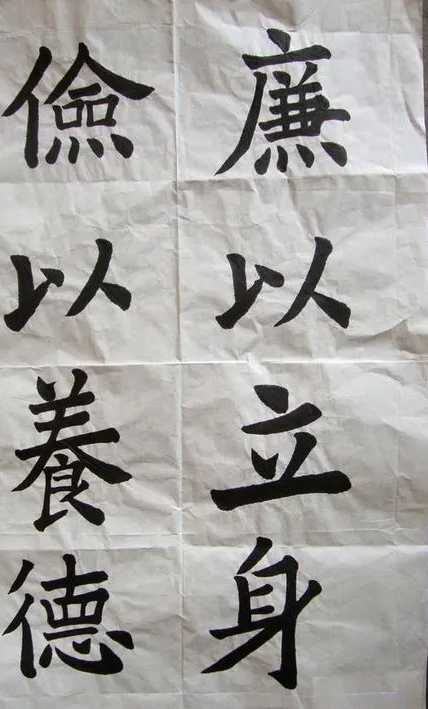 廉以立身
儉以養德